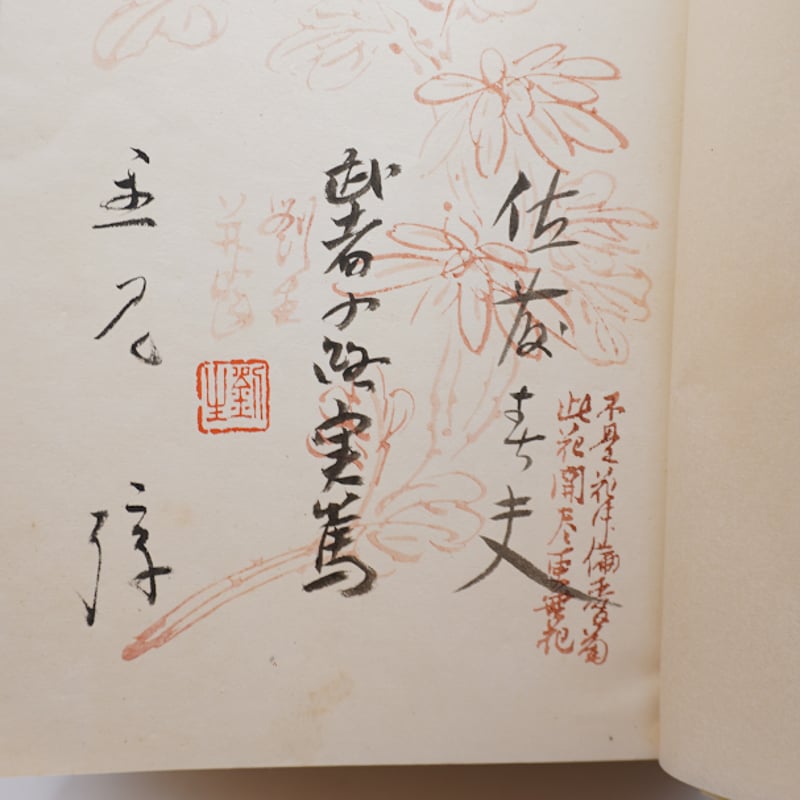 不是花中偏愛菊
此花開尽更無花
佐藤春夫
武者小路実篤
劉生
劉生
里見弴